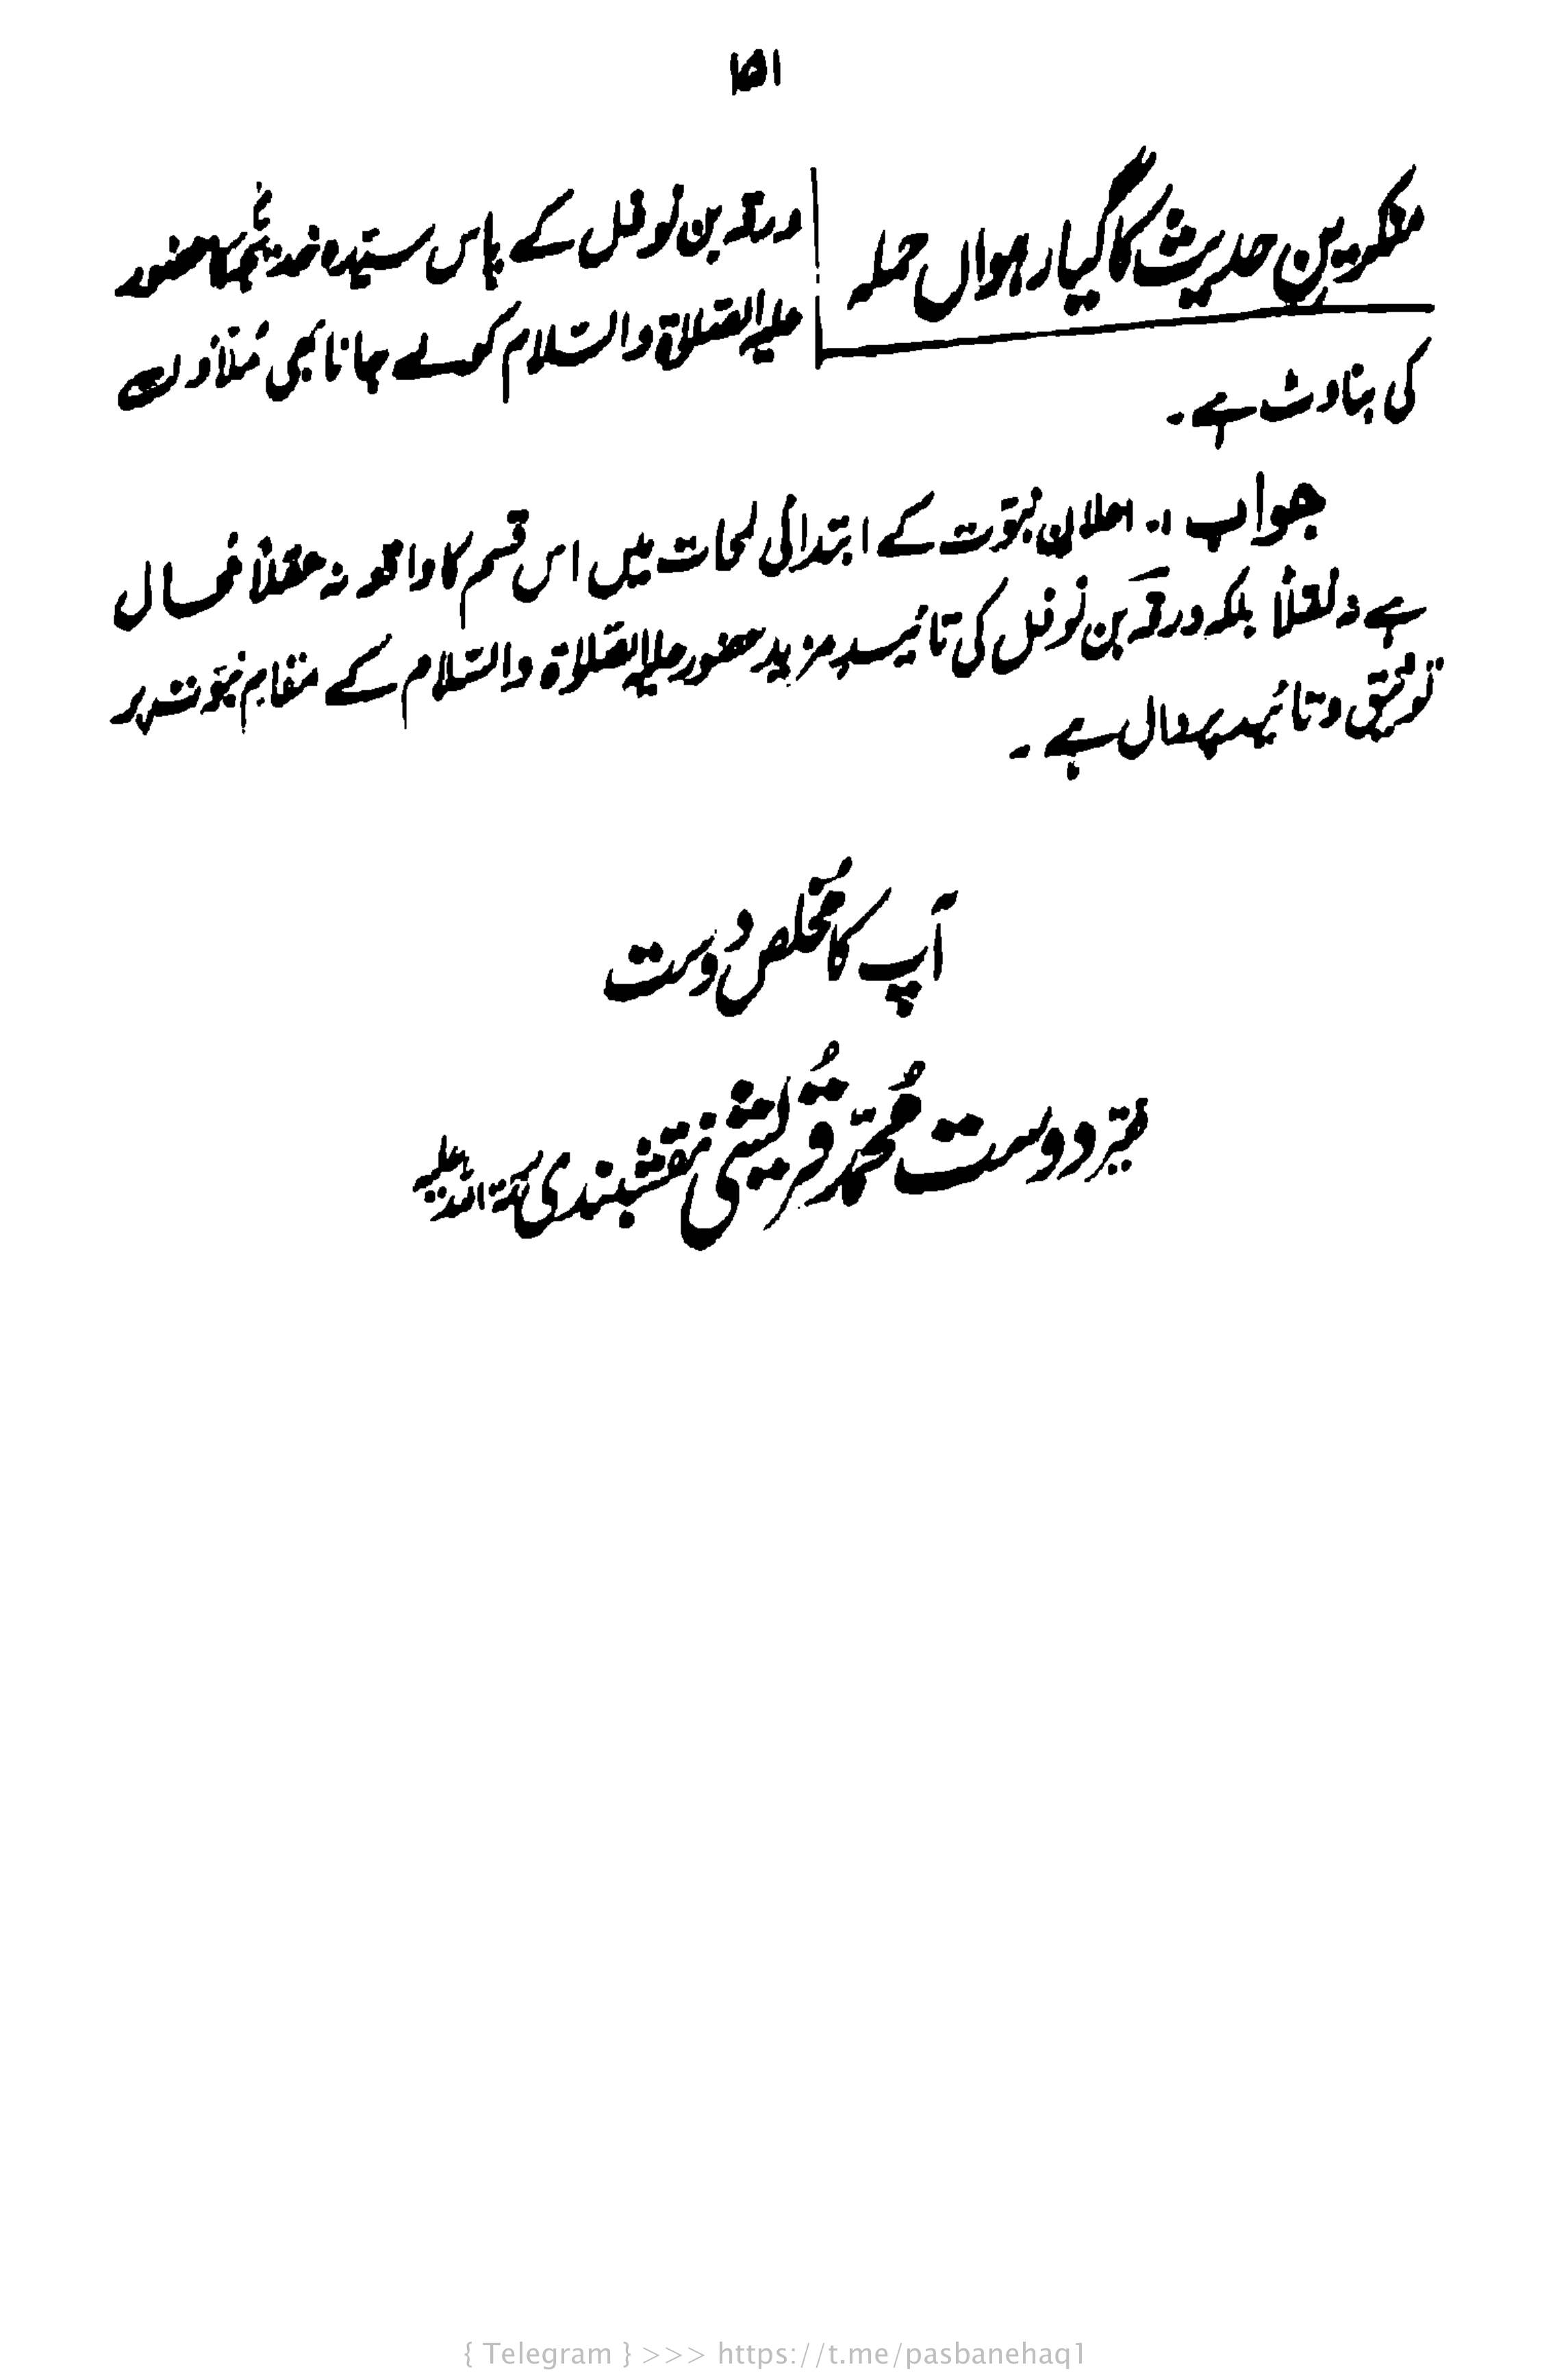 ۱۵۱
منکرین حدیث کا گیارہواں حملہ
ورقہ بن نوفل کے پاس سیدہ خدیجہؓ کا حضور
علیہ الصّلاۃ والسّلام کو لے جانا بھی
کی بناوٹ ہے۔
جواب :۔ اعلانِ نبوّت کے ابتدائی لمحات میں اس قسم کا واقعہ نہ عقلاً محال
ہے نہ نقلاً بلکہ ورقہ بن نوفل کی تائید مزید حضور علیہ الصّلاۃ والسّلام کے مقامِ نبوّت پر
توثیق و تائید پر دال ہے۔
آپ کا مخلص دوست
دوست محمّد قُریشی نقشبندی رحمۃ اللہ علیہ
{ Telegram } >>> https://t.me/pasbanehaq1